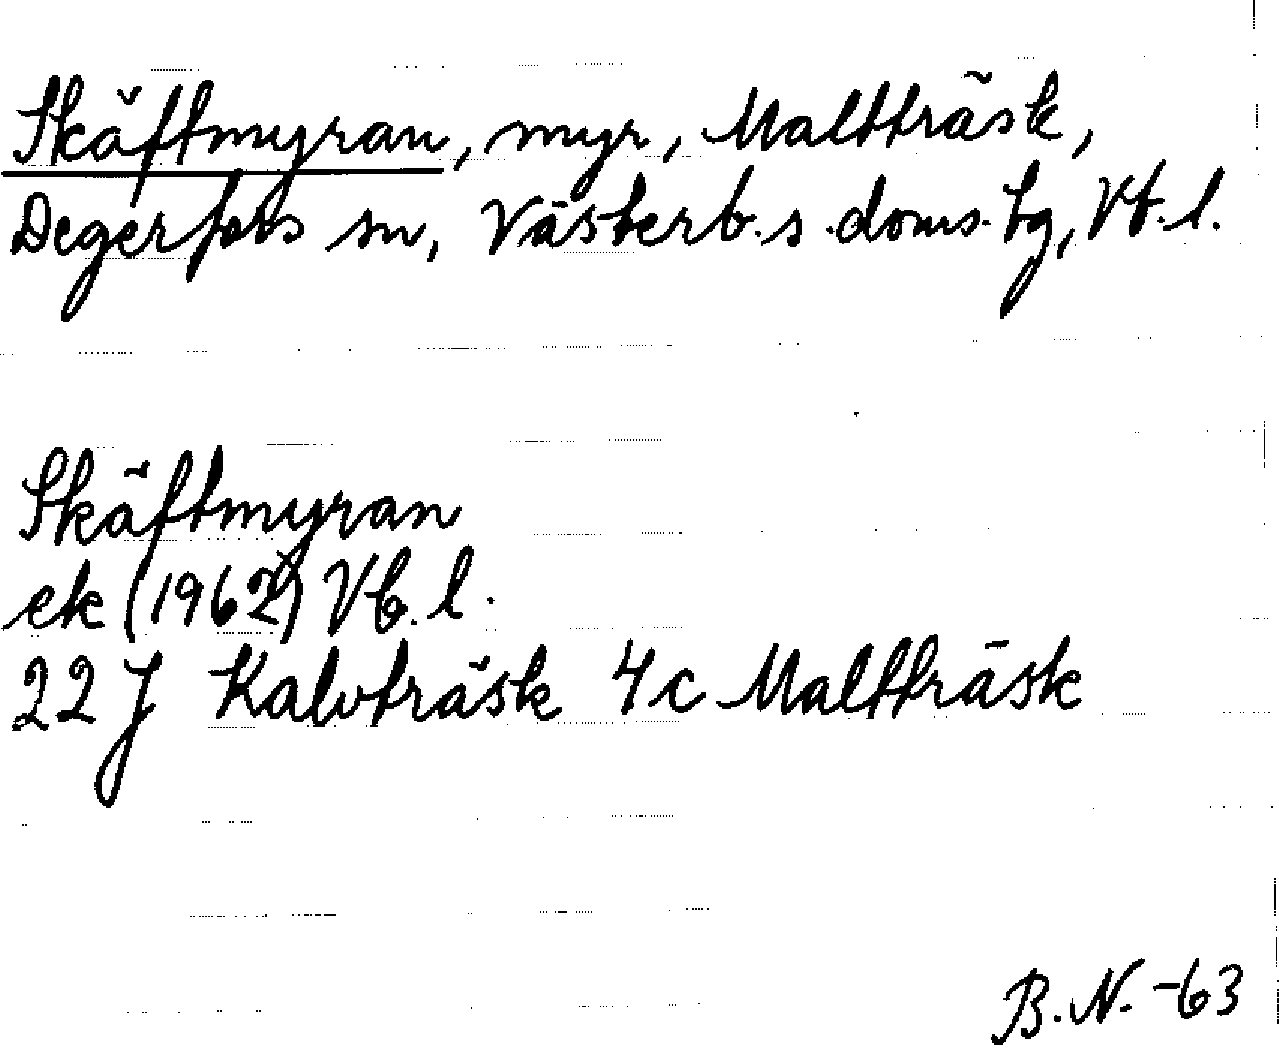 Skäftmyran, myr, Maltträsk,
Degerfors sn, Västerb. s. doms. tg, Vb. l.
Skäftmyran
ek (1962) Vb. l.
22 J Kalvträsk 4c Maltträsk
B. N. -63